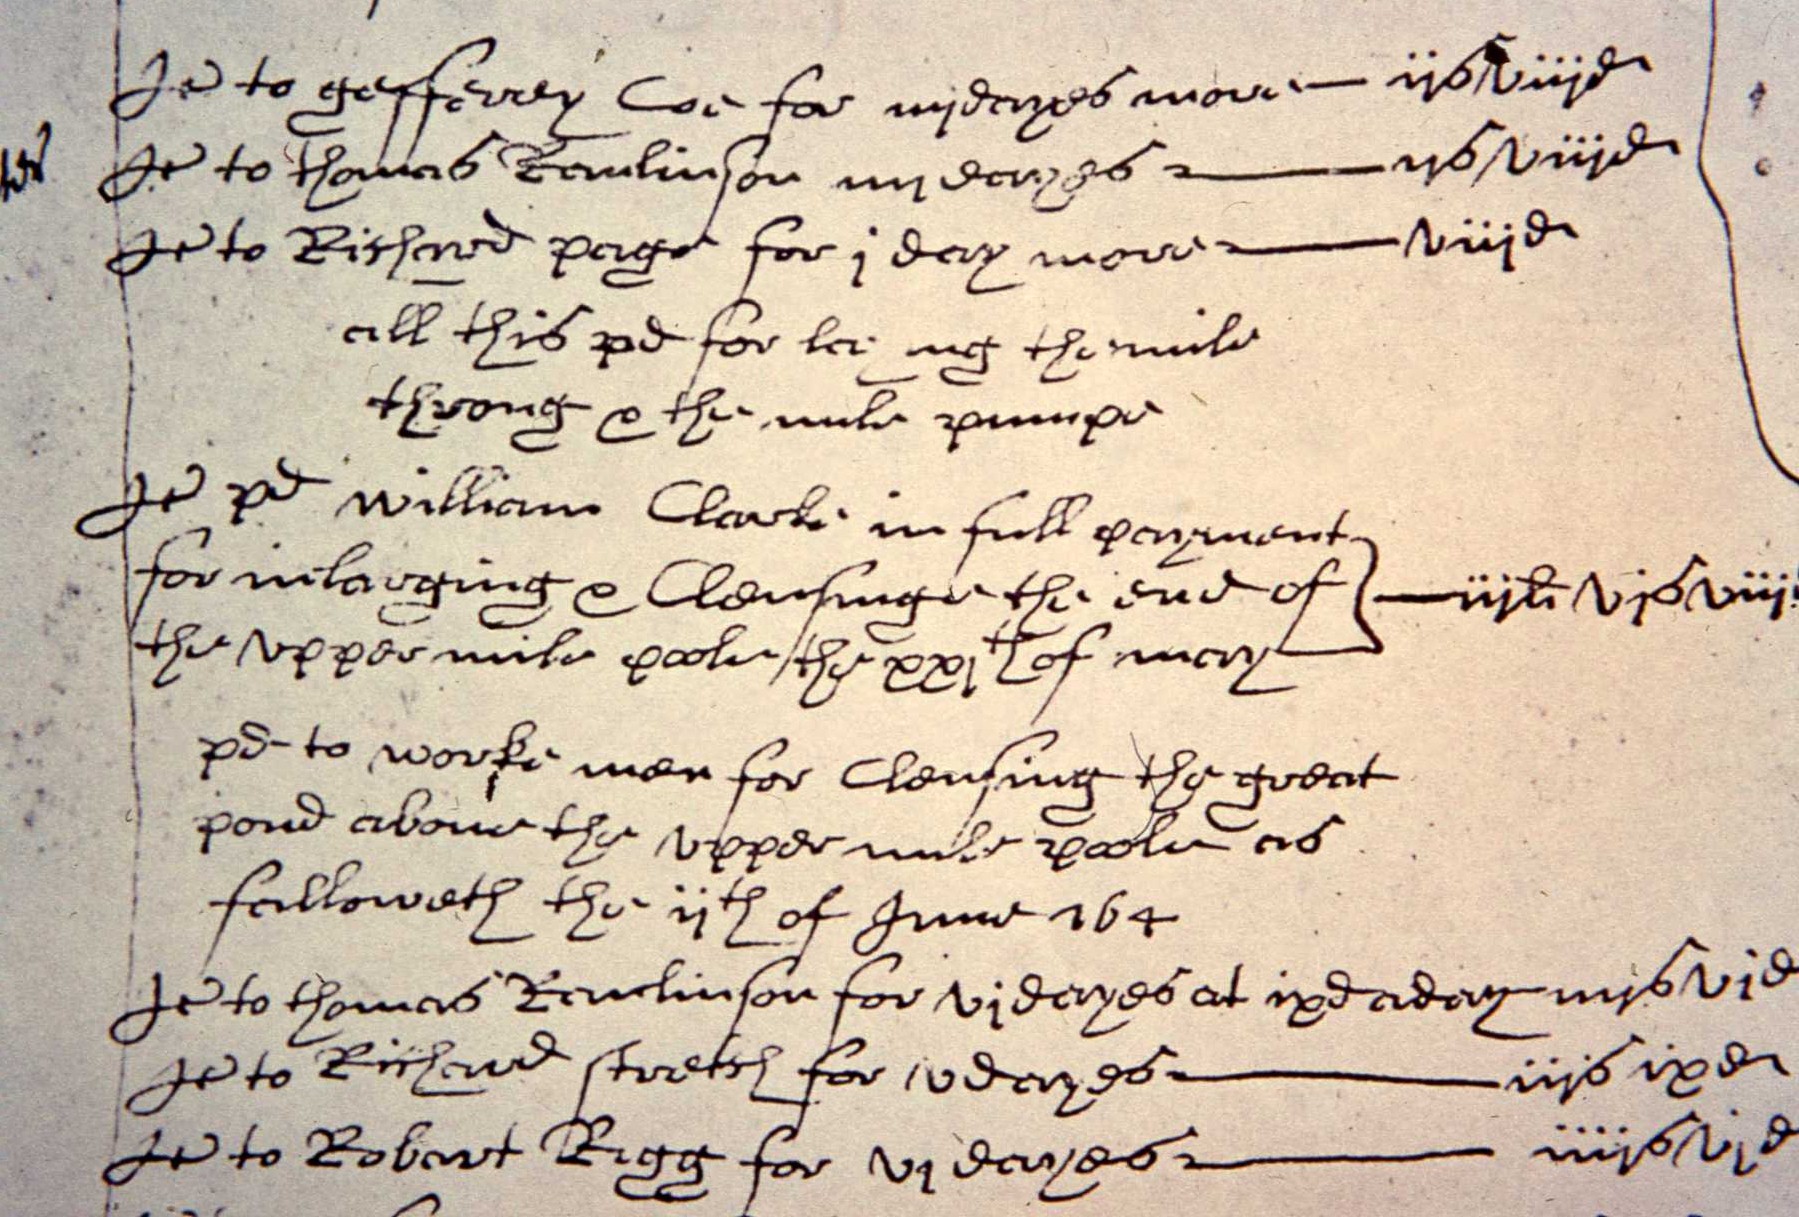 It to gefferey Coe for iiijdayes more ijs viijd
It to thomas Rawlinson iiij dayes ijs viijd
It to Richard page for j day more viijd
all this pd for leying the mile
throug & the mile pumpe
It pd william Clarke in full payment
for inlarging & Clensinge the end of iijli vjs viij
the vpper mile poole the xxjth of may
pd to worke men for Clensing the great
pond aboue the vpper mile poole as
falloweth the ijth of June 164
It to thomas Rawlinson for vjdayes at ixd a day iiijs vjd
It to Richard stretch for vdayes iijs ixd
It to Robart Rigg for vj dayes iiijs vjd